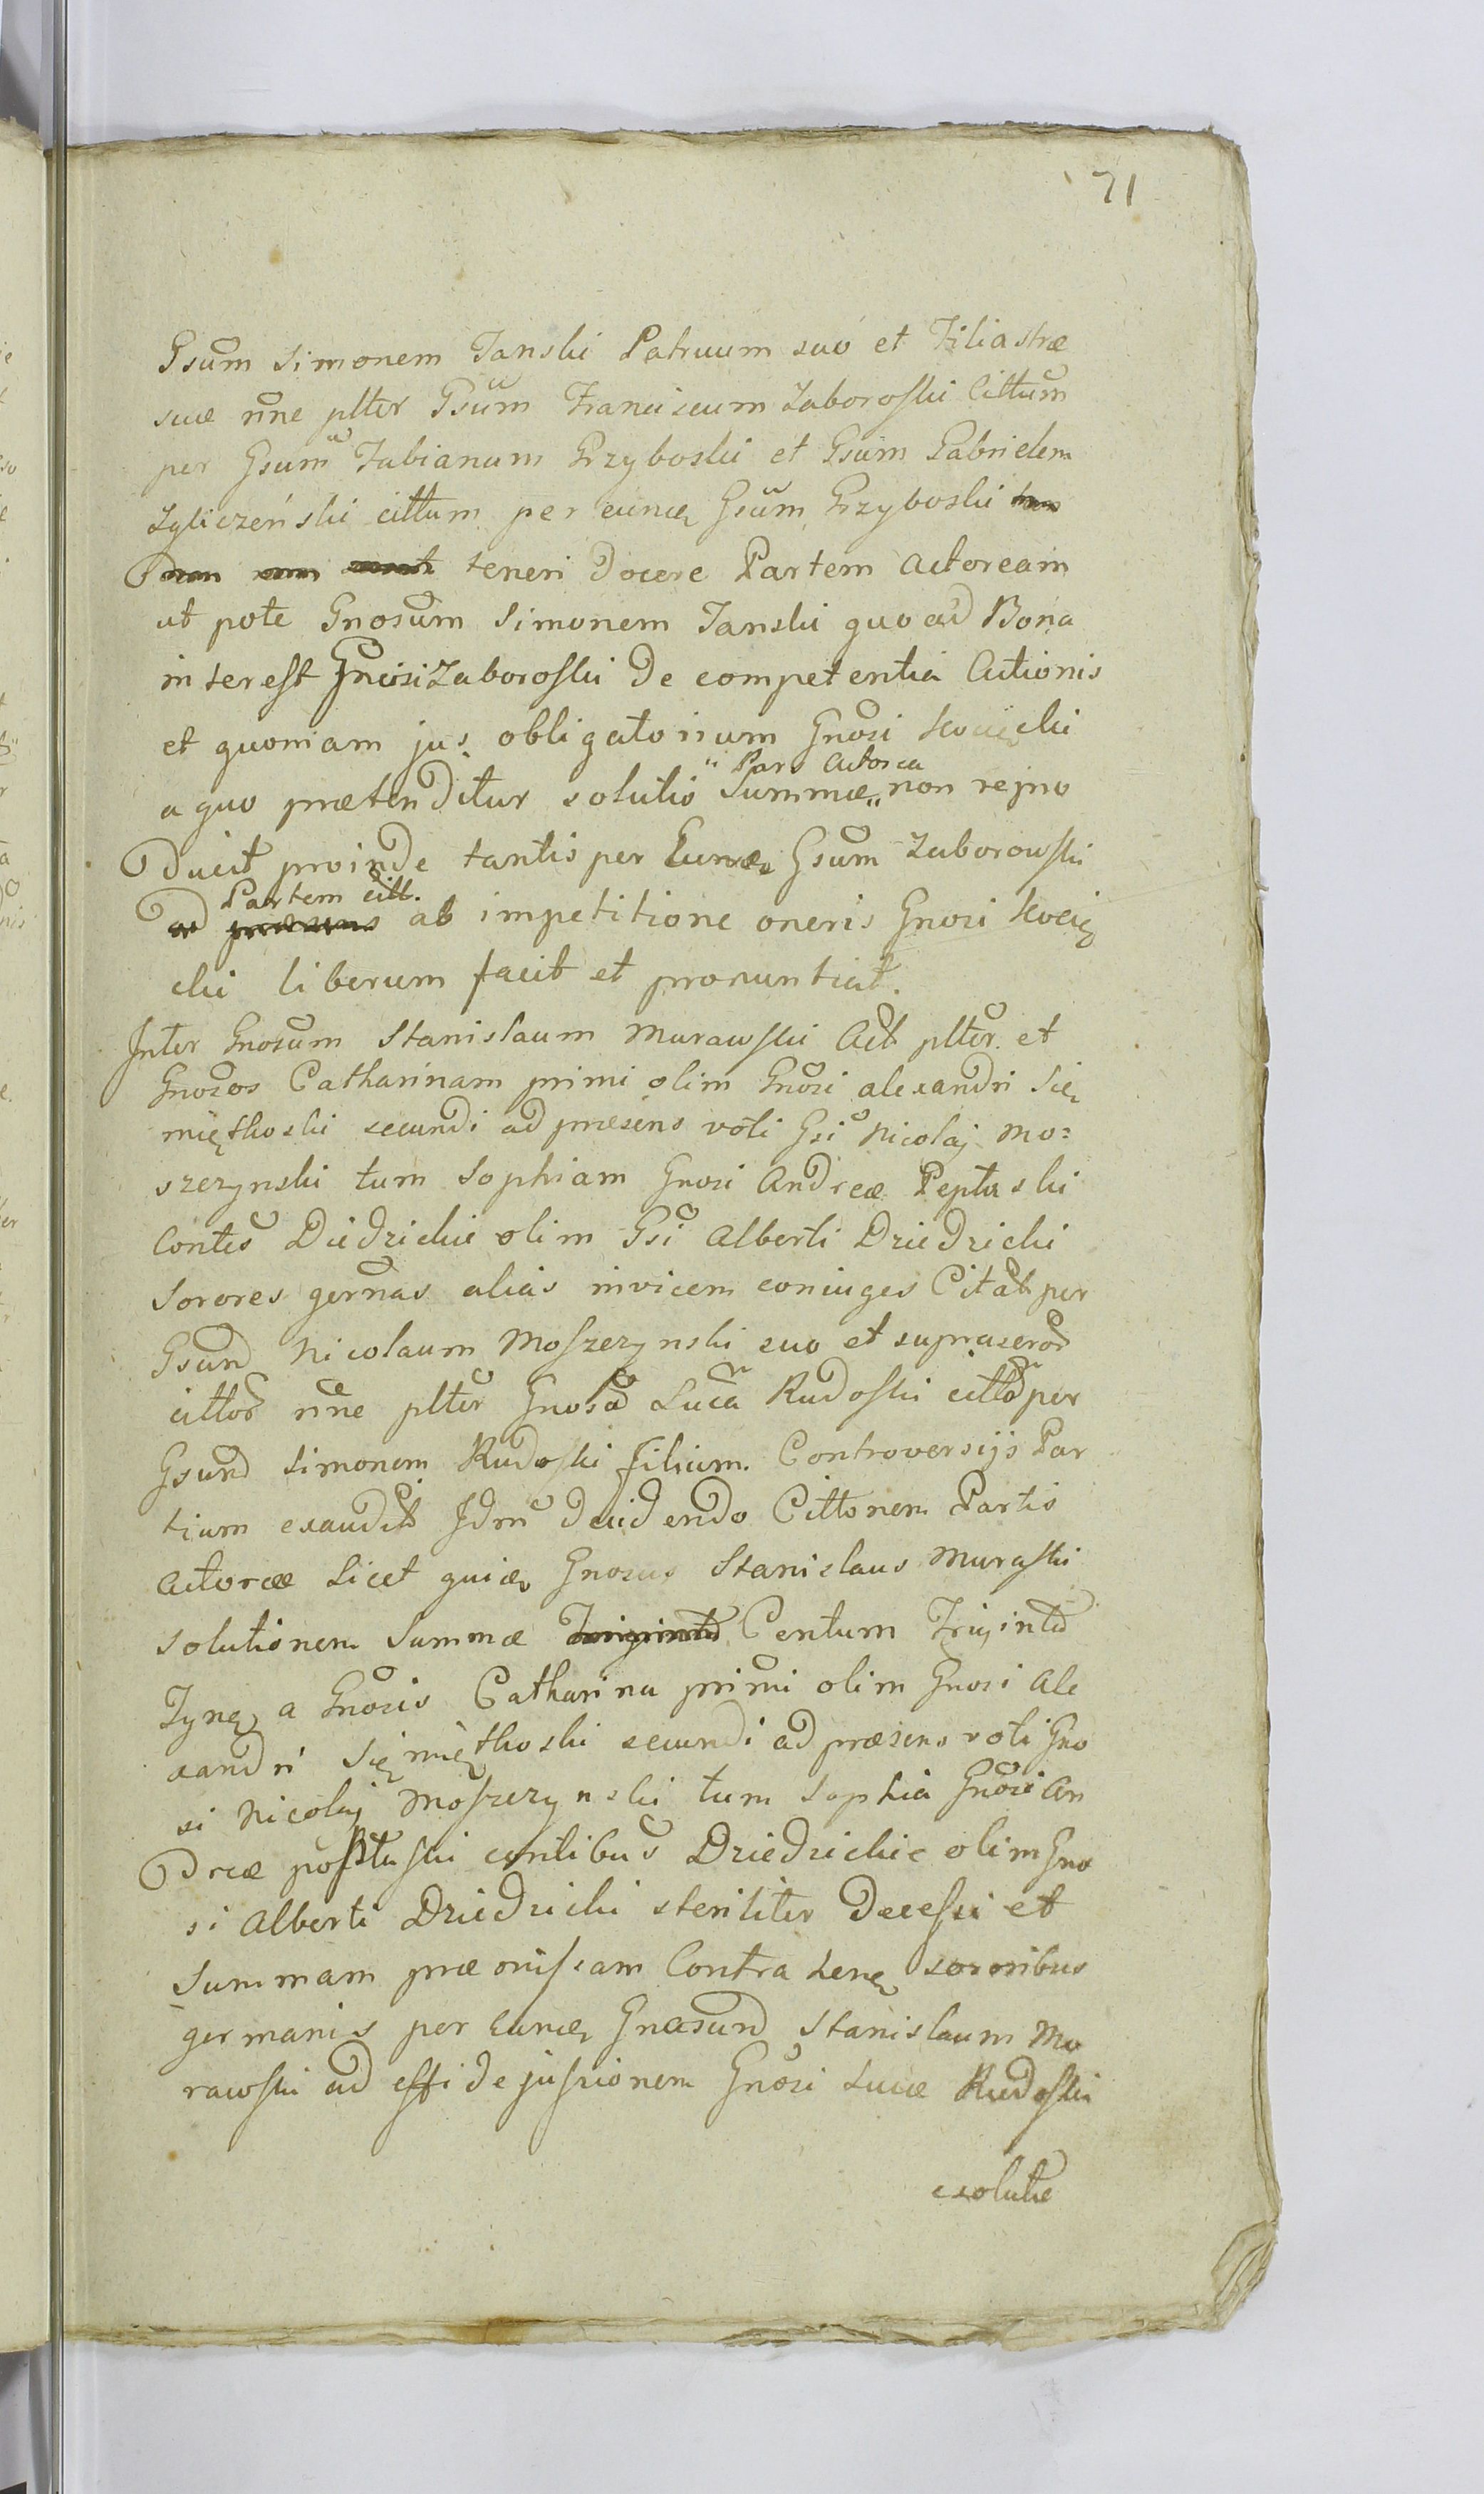 71
Gsum Simonem Janski Patruum suo et Filiastræ
suæ nne plter Gsum Franciscum Zaboroski Cittum
per Gsum Fabianum Przyboski et Gsum Gabrielem
Zyliczeński cittum per eunq Gsum Przyboski
teneri Docere Partem Actoream
ut pote Gnosum Simonem Janski quo ad Bona
interest Gnosi Zaboroski De competentia Actionis
et quoniam jus obligatorium Gnosi
Pars Actorea
a quo prætenditur solutio Summæ non repro
Ducit proinde tantisper Eunq Gsum Zaborowski
Partem citt.
ad ab impetitione oneris Gnosi
cki liberum facit et pronuntiat.
Inter Gnosum Stanislaum Murawski Act plter et
Gnosos Catharinam primi olim Gnosi Alexandri Się
miętkoski secundi ad præsens voti Gsi Nicolaj Mo=
szczynski tum Sophiam Gnosi Andreæ Peptaski
Contes Dziedzickie olim Gsi Alberti Dziedzicki
Sorores gernas alias invicem coniuges Citat per
Gsum Nicolaum Moszczynski suo et suprascror
cittor nne plter Gnosum Lucam Rudoski citto per
Gsum Simonem Rudoski filium. Controversijs Par
tium exaudit Idm Decidendo Cittonem Partis
Actoreæ Licet quia Gnosus Stanislaus Muraski
solutionem Summæ Centum Triginta
Tynq a Gnosis Catharina primi olim Gnosi Ale
xandri Sięmiętkoski secundi ad præsens voti Gno
si Nicolaj Moszczynski tum Sophia Gnosi An
Dreæ contibus Dziedzickie olim Gno
si Alberti Dziedzicki steriliter Decessi et
Summam præmissam Contra sororibus
germanis per Eunq Gnosum Stanislaum Mu
rawski ad effidejussionem Gnosi Lucæ Rudoski
exolutæ